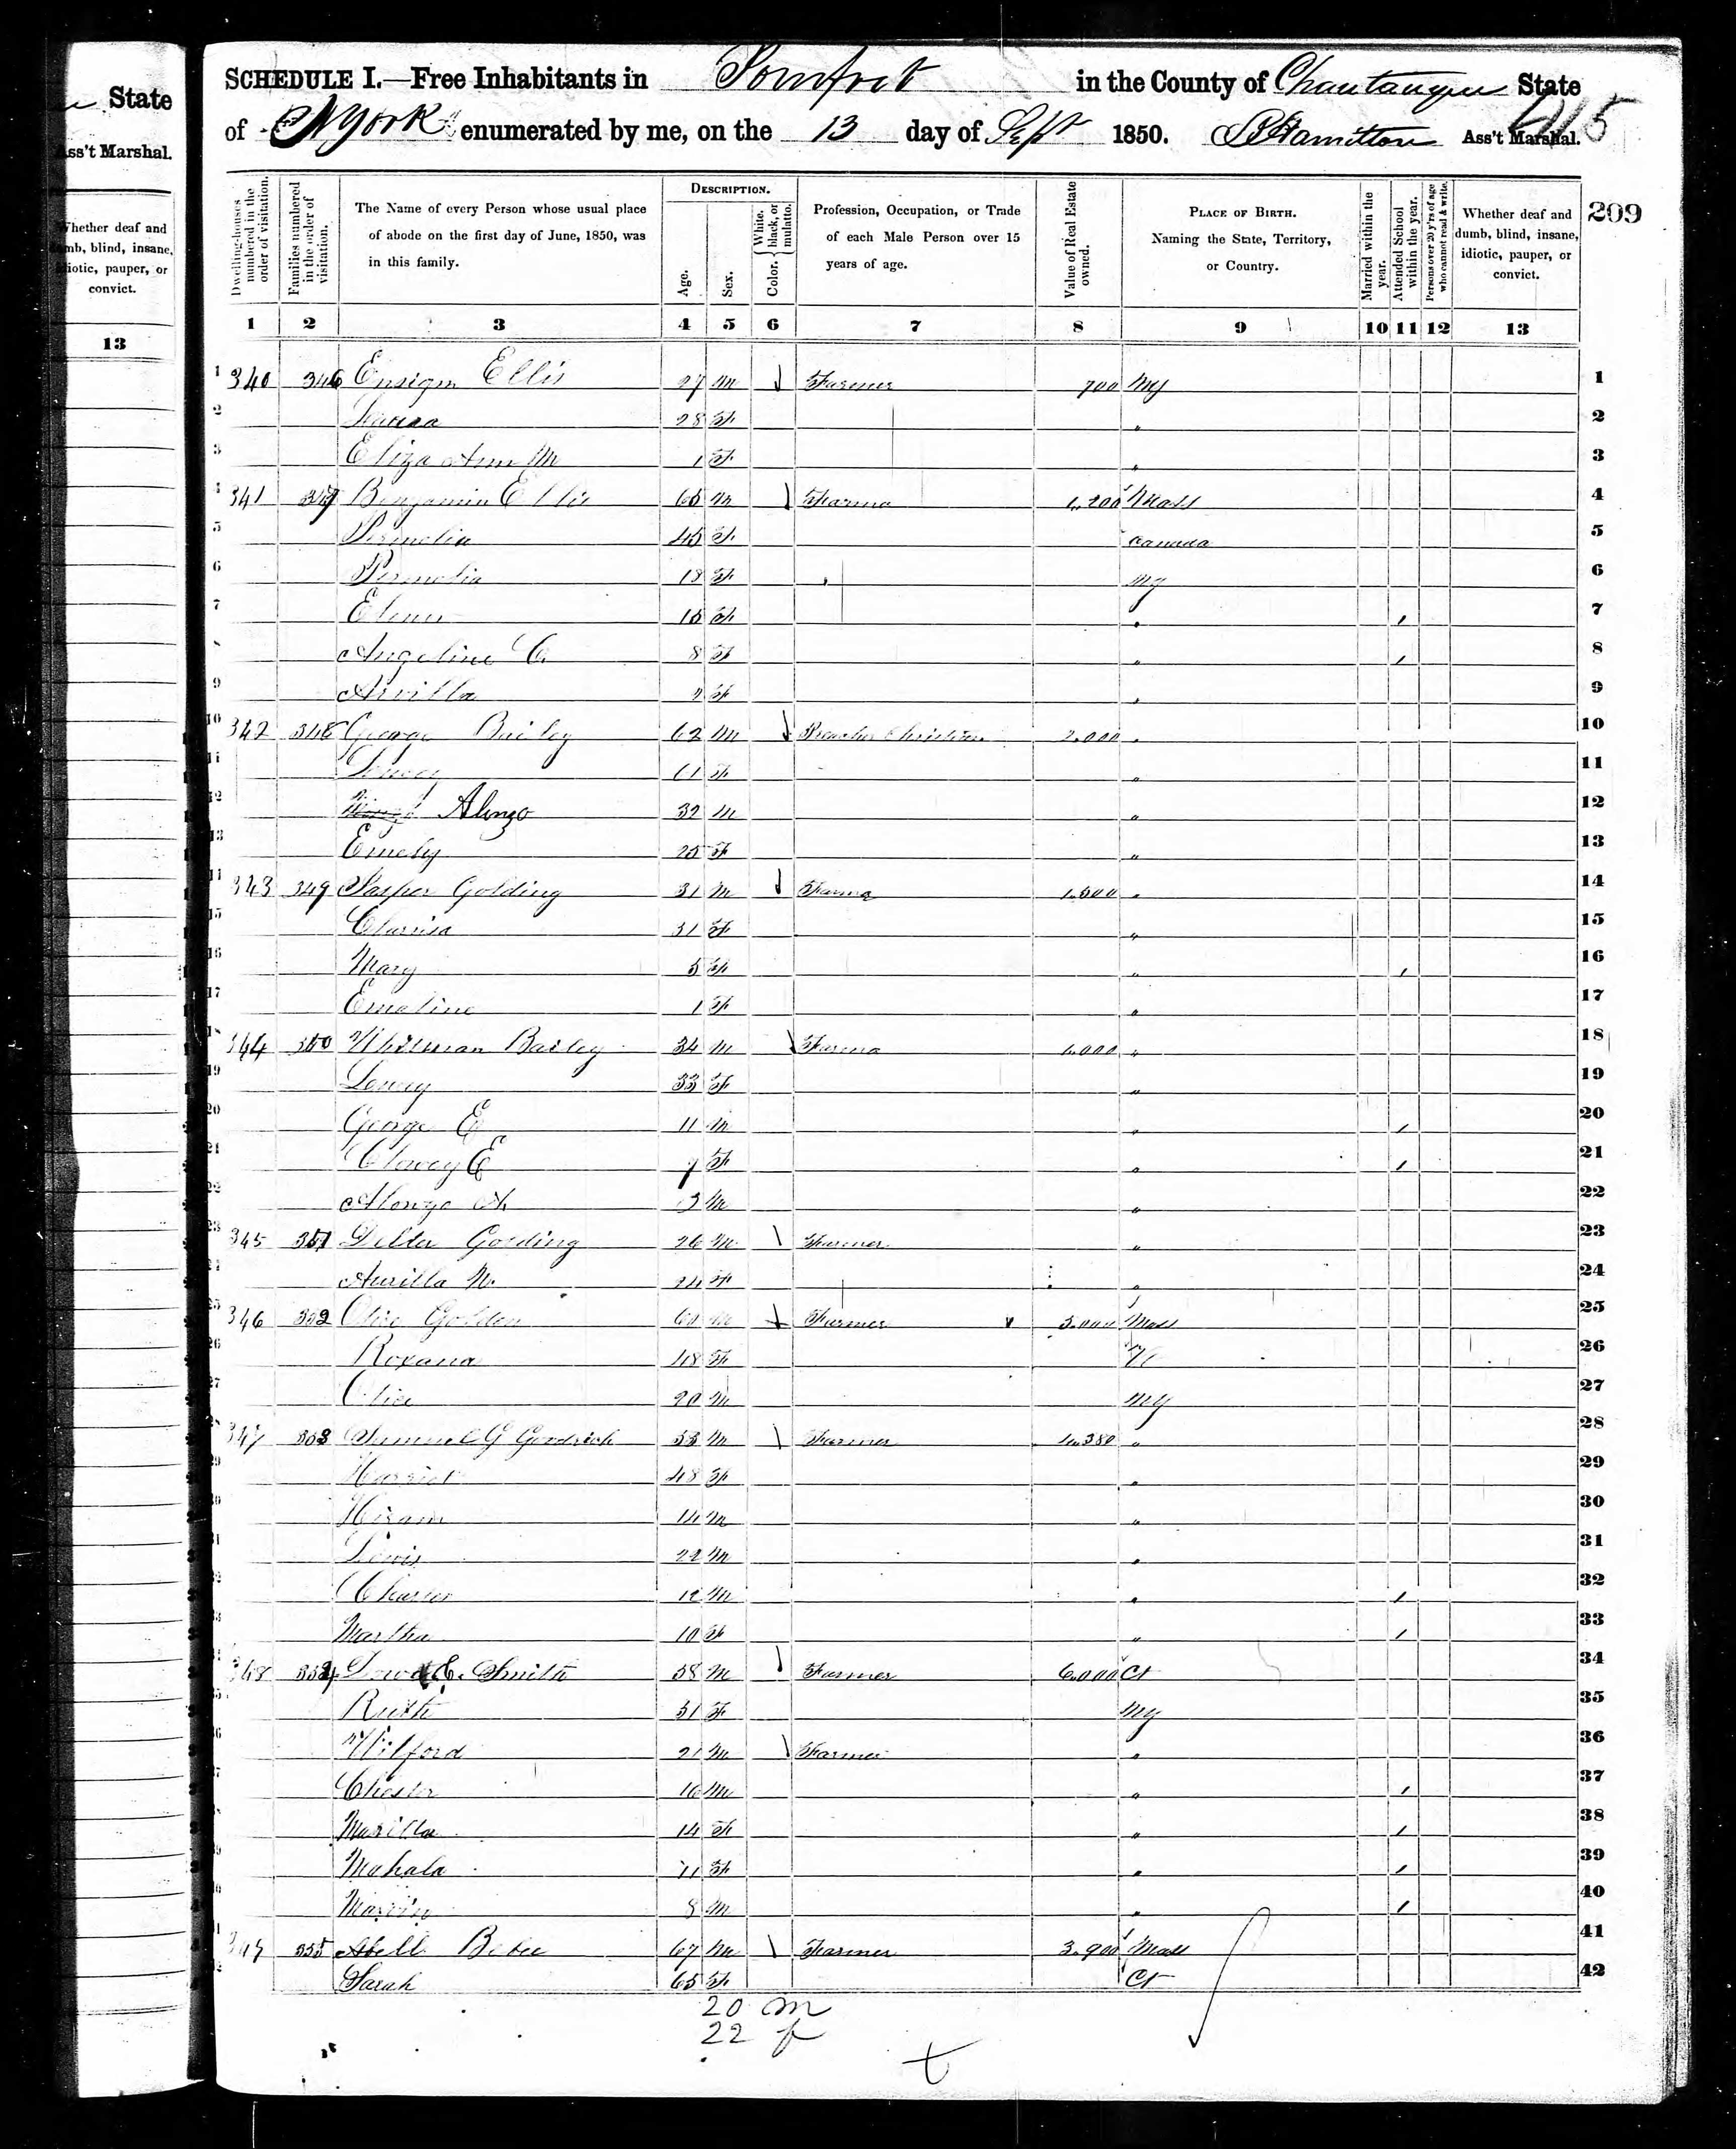 State
Ass't Marshal.
Whether deaf and dumb, blind, insane, idiotic, pauper, or convict.
13
SCHEDULE I.—Free Inhabitants in Pomfret in the County of Chautauque State
of N York enumerated by me, on the 13 day of Sept 1850. Hamilton Ass't Marshal.
209
Dwelling-houses numbered in the order of visitation.
Families numbered in the order of visitation.
The Name of every Person whose usual place of abode on the first day of June, 1850, was in this family.
DESCRIPTION.
Age.
Sex.
Color. White, black, or mulatto.
Profession, Occupation, or Trade of each Male Person over 15 years of age.
Value of Real Estate owned.
PLACE OF BIRTH. Naming the State, Territory, or Country.
Married within the year.
Attended School within the year.
Persons over 20 y'rs of age who cannot read & write.
Whether deaf and dumb, blind, insane, idiotic, pauper, or convict.
1 2 3 4 5 6 7 8 9 10 11 12 13
1 340 346 Ensign Ellis 27 M Farmer 700 NY 1
2 28 F " 2
3 Eliza Ann M 1 F " 3
341 347 Benjamin Ellis M Farmer 1,200 Mass 4
5 Permelia 45 F Canada 5
6 Permelia 18 F NY 6
7 15 F " / 7
Angeline C. 8 F " / 8
9 Arvilla F " 9
10 342 348 George Bailey 62 M Preacher Christian 2,000 " 10
11 61 F " 11
12 Alonzo 32 M " 12
13 Emely 25 F " 13
343 349 Jasper Golding 31 M Farmer 1,500 " 14
15 Clarisa 31 F " 15
16 Mary 5 F " / 16
17 Emeline 1 F " 17
18 344 350 Whitman Bailey 34 M Farmer 1,000 " 18
19 33 F " 19
20 George E 11 M " / 20
21 E 7 F " / 21
22 Alonzo A. 3 M " 22
23 345 351 Golding 26 M Farmer " 23
Aurilla M. 24 F " 24
25 346 352 Golden 60 M Farmer 3,000 Mass 25
26 Roxana 48 F Vt 26
27 20 M NY 27
347 353 Samuel G Goodrich 53 M Farmer 1,380 " 28
29 Harriet 48 F " 29
Hiram 14 M " 30
Lewis 22 M " 31
Charles 12 M " / 32
Martha 10 F " / 33
348 354 E. Smith 58 M Farmer 6,000 Ct 34
Ruth 51 F NY 35
Wilford 21 M Farmer " 36
Chester 16 M " / 37
Marilla 14 F " / 38
Mahala 11 F " / 39
Marvin 8 M " / 40
349 355 Abell Bebee 67 M Farmer 3,900 Mass 41
Sarah 65 F Ct 42
20 m
22 f